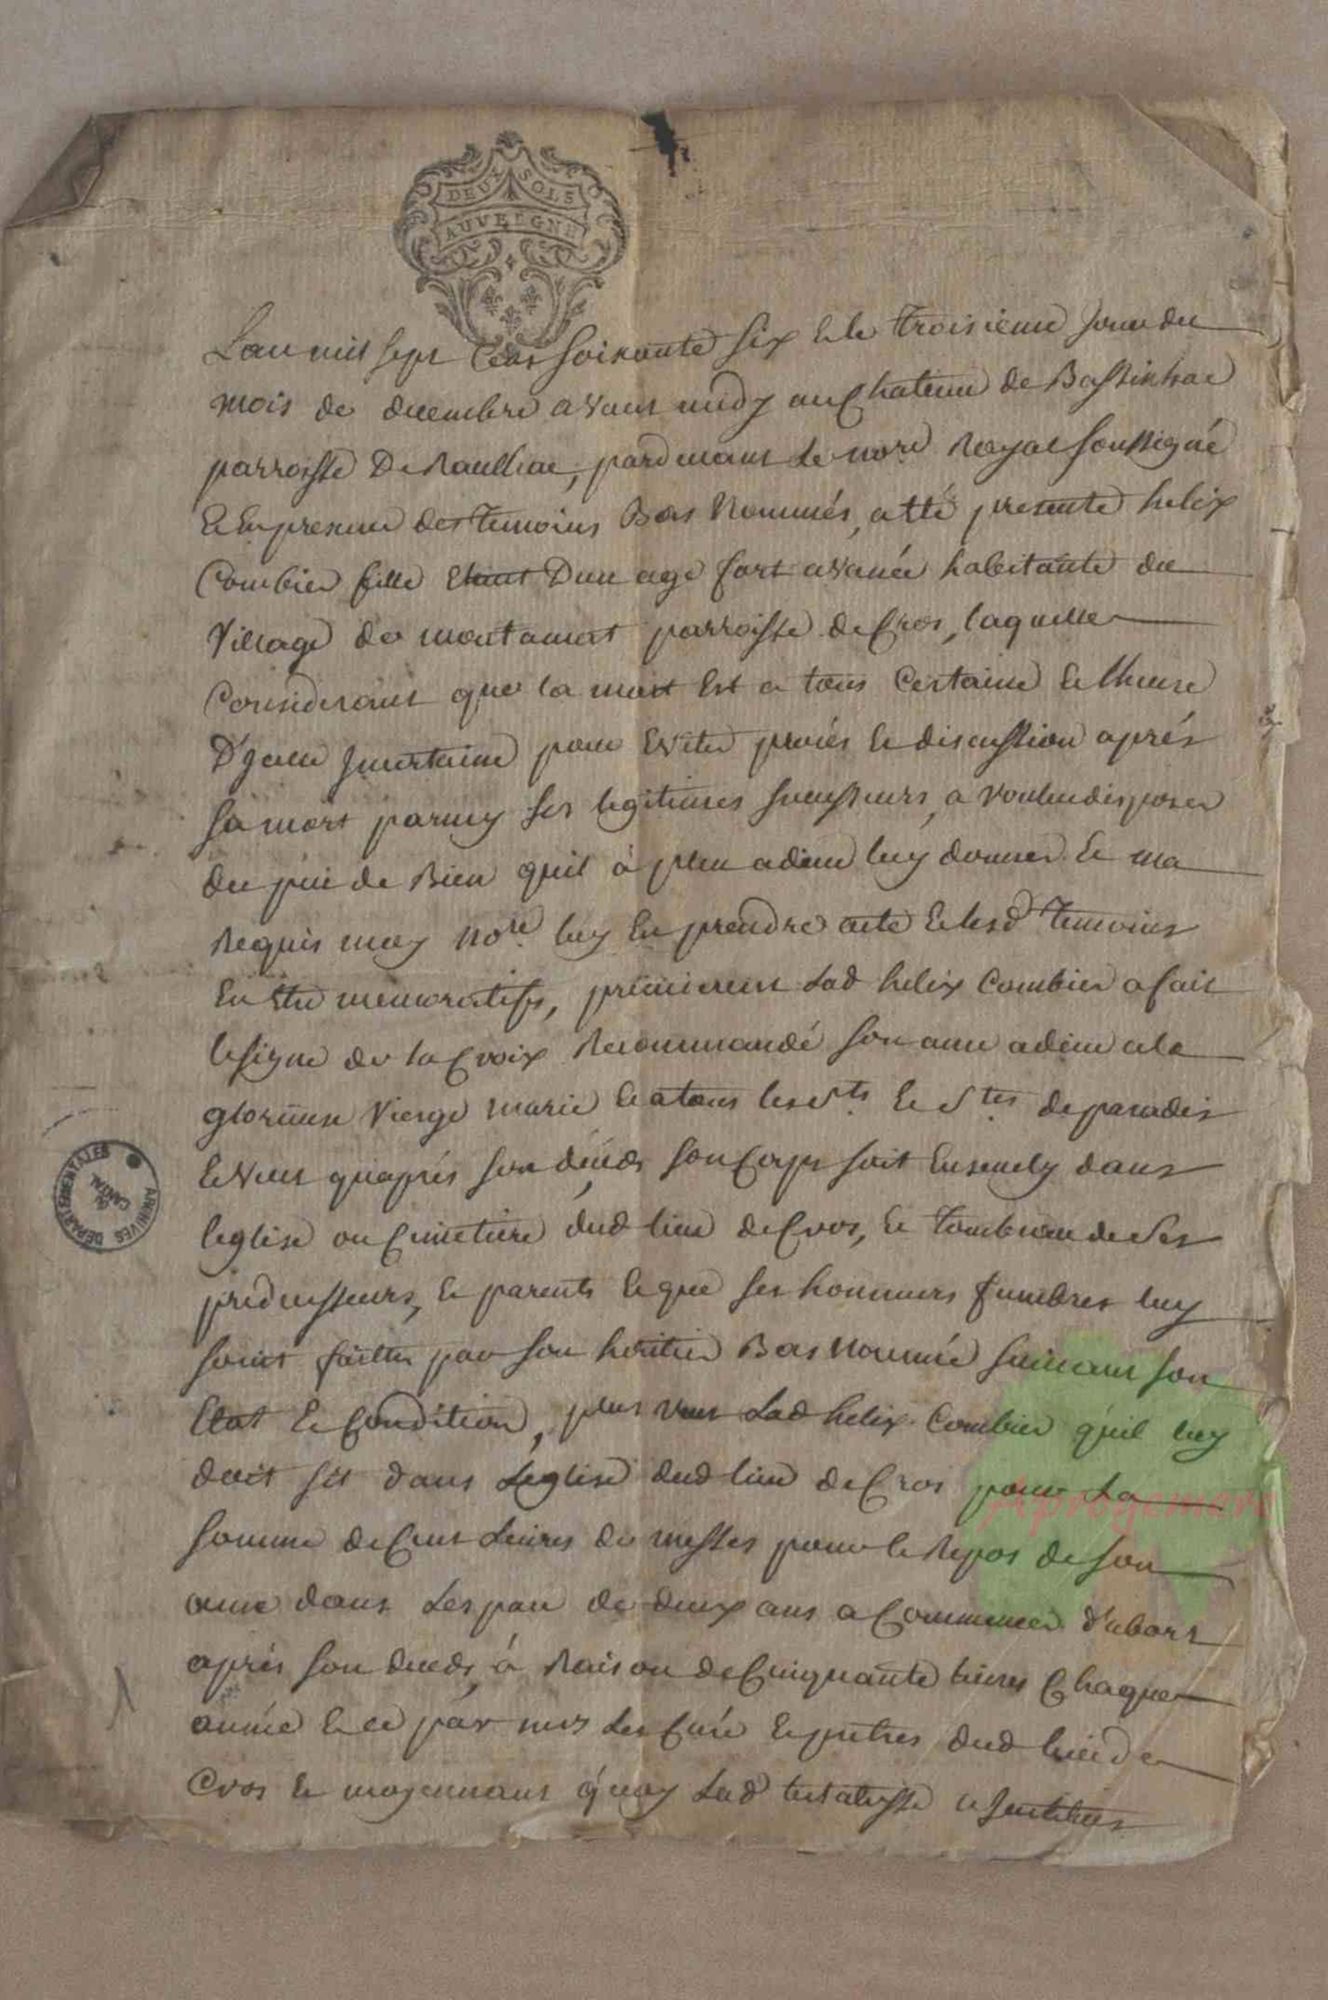 DEUX SOLS
AUVERGNE
Lan mil sept cens soixante six & le troisieme jour du
mois de decembre avant midy au Chateau de Bassinhac
parroisse De Raulhac, pardevant Le nore Royal soussigné
& En presence des temoins Bas Nommés, a été presente helix
Combier fille Etant Dun age fort avancé habitante du
Village de montamat parroisse de Cros, laquelle
Considerant que la mort Est a tous Certaine & lheure
D'jcelle jncertaine pour Eviter procés & discussion aprés
sa mort parmy ses legitimes successeurs, a voulu disposer
du peu de Bien quil à plu a dieu luy donner & ma
Requis moy nore luy En prendre acte & lesd temoins
En étre memoratifs, premierement Lad helix Combier a fait
le signe de la Croix Recommandé son ame a dieu a la
glorieuse Vierge marie & a tous les Sts & Stes de paradis
& Veut quaprés son décéds son Corps soit Ensevely dans
leglise ou Cimetiere dud lieu de Cros, & tombeau de Ses
predecesseurs, & parents & que ses honneurs funebres luy
soient faittes par son heritier Bas Nommé suivant son
Etat & Condition, plus veut Lad helix Combier quil luy
soit dit dans Leglise dud lieu de Cros pour La
somme de Cent Livres de messes pour le Repos de son
ame dans Lespace de deux ans a Commencer d'abort
aprés son deceds, à Raison de Cinquante livres Chaque
année & ce par mrs Les Curé & prétres dud lieu de
Cros & moyennant quoy Lad testatrisse
ARCHIVES DÉPARTEMENTALES
CANTAL
Aprogemere
1